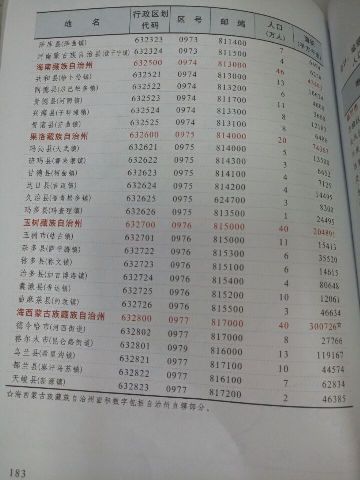 地 名 行政区划代码 区 号 邮 编 人口(万人) 面积
泽库县(泽曲镇) 632323 0973 811400 7
河南蒙古族自治县(优干宁镇) 632324 0973 811500 4
海南藏族自治州 632500 0974 813000 46
共和县(恰卜恰镇) 632521 0974 813000 13
同德县(尕巴松多镇) 632522 0974 813200 6
贵德县(河阴镇) 632523 0974 811700
兴海县(子科滩镇) 632524 0974 813300
贵南县(茫曲镇) 632525 0974 813100
果洛藏族自治州 632600 0975 814000 20
玛沁县(大武镇) 632621 0975 814000 5
班玛县(赛来塘镇) 632622 0975 814300 3
甘德县(柯曲镇) 632623 0975 814100 4
达日县(吉迈镇) 632624 0975 814200 4 14495
久治县(智青松多镇) 632625 0975 624700 3
玛多县(玛查理镇) 632626 0975 813500 1 24495
玉树藏族自治州 632700 0976 815000 40
玉树市(结古镇) 632701 0976 815000 11 15413
杂多县(萨呼腾镇) 632722 0976 815300 6 35520
称多县(称文镇) 632723 0976 815100 6 14615
治多县(加吉博洛镇) 632724 0976 815400 4 80648
囊谦县(香达镇) 632725 0976 815200 10 12061
曲麻莱县(约改镇) 632726 0976 815500 3 46634
海西蒙古族藏族自治州 632800 0977 817000 40 300726☆
德令哈市(河西街道) 632802 0977 817000 8 27766
格尔木市(昆仑路街道) 632801 0979 816000 13 119167
乌兰县(希里沟镇) 632821 0977 817100 10 44574
都兰县(察汗乌苏镇) 632822 0977 816100 7 62834
天峻县(新源镇) 632823 0977 817200 2 46385
☆海西蒙古族藏族自治州面积数字包括自治州直辖部分。
183